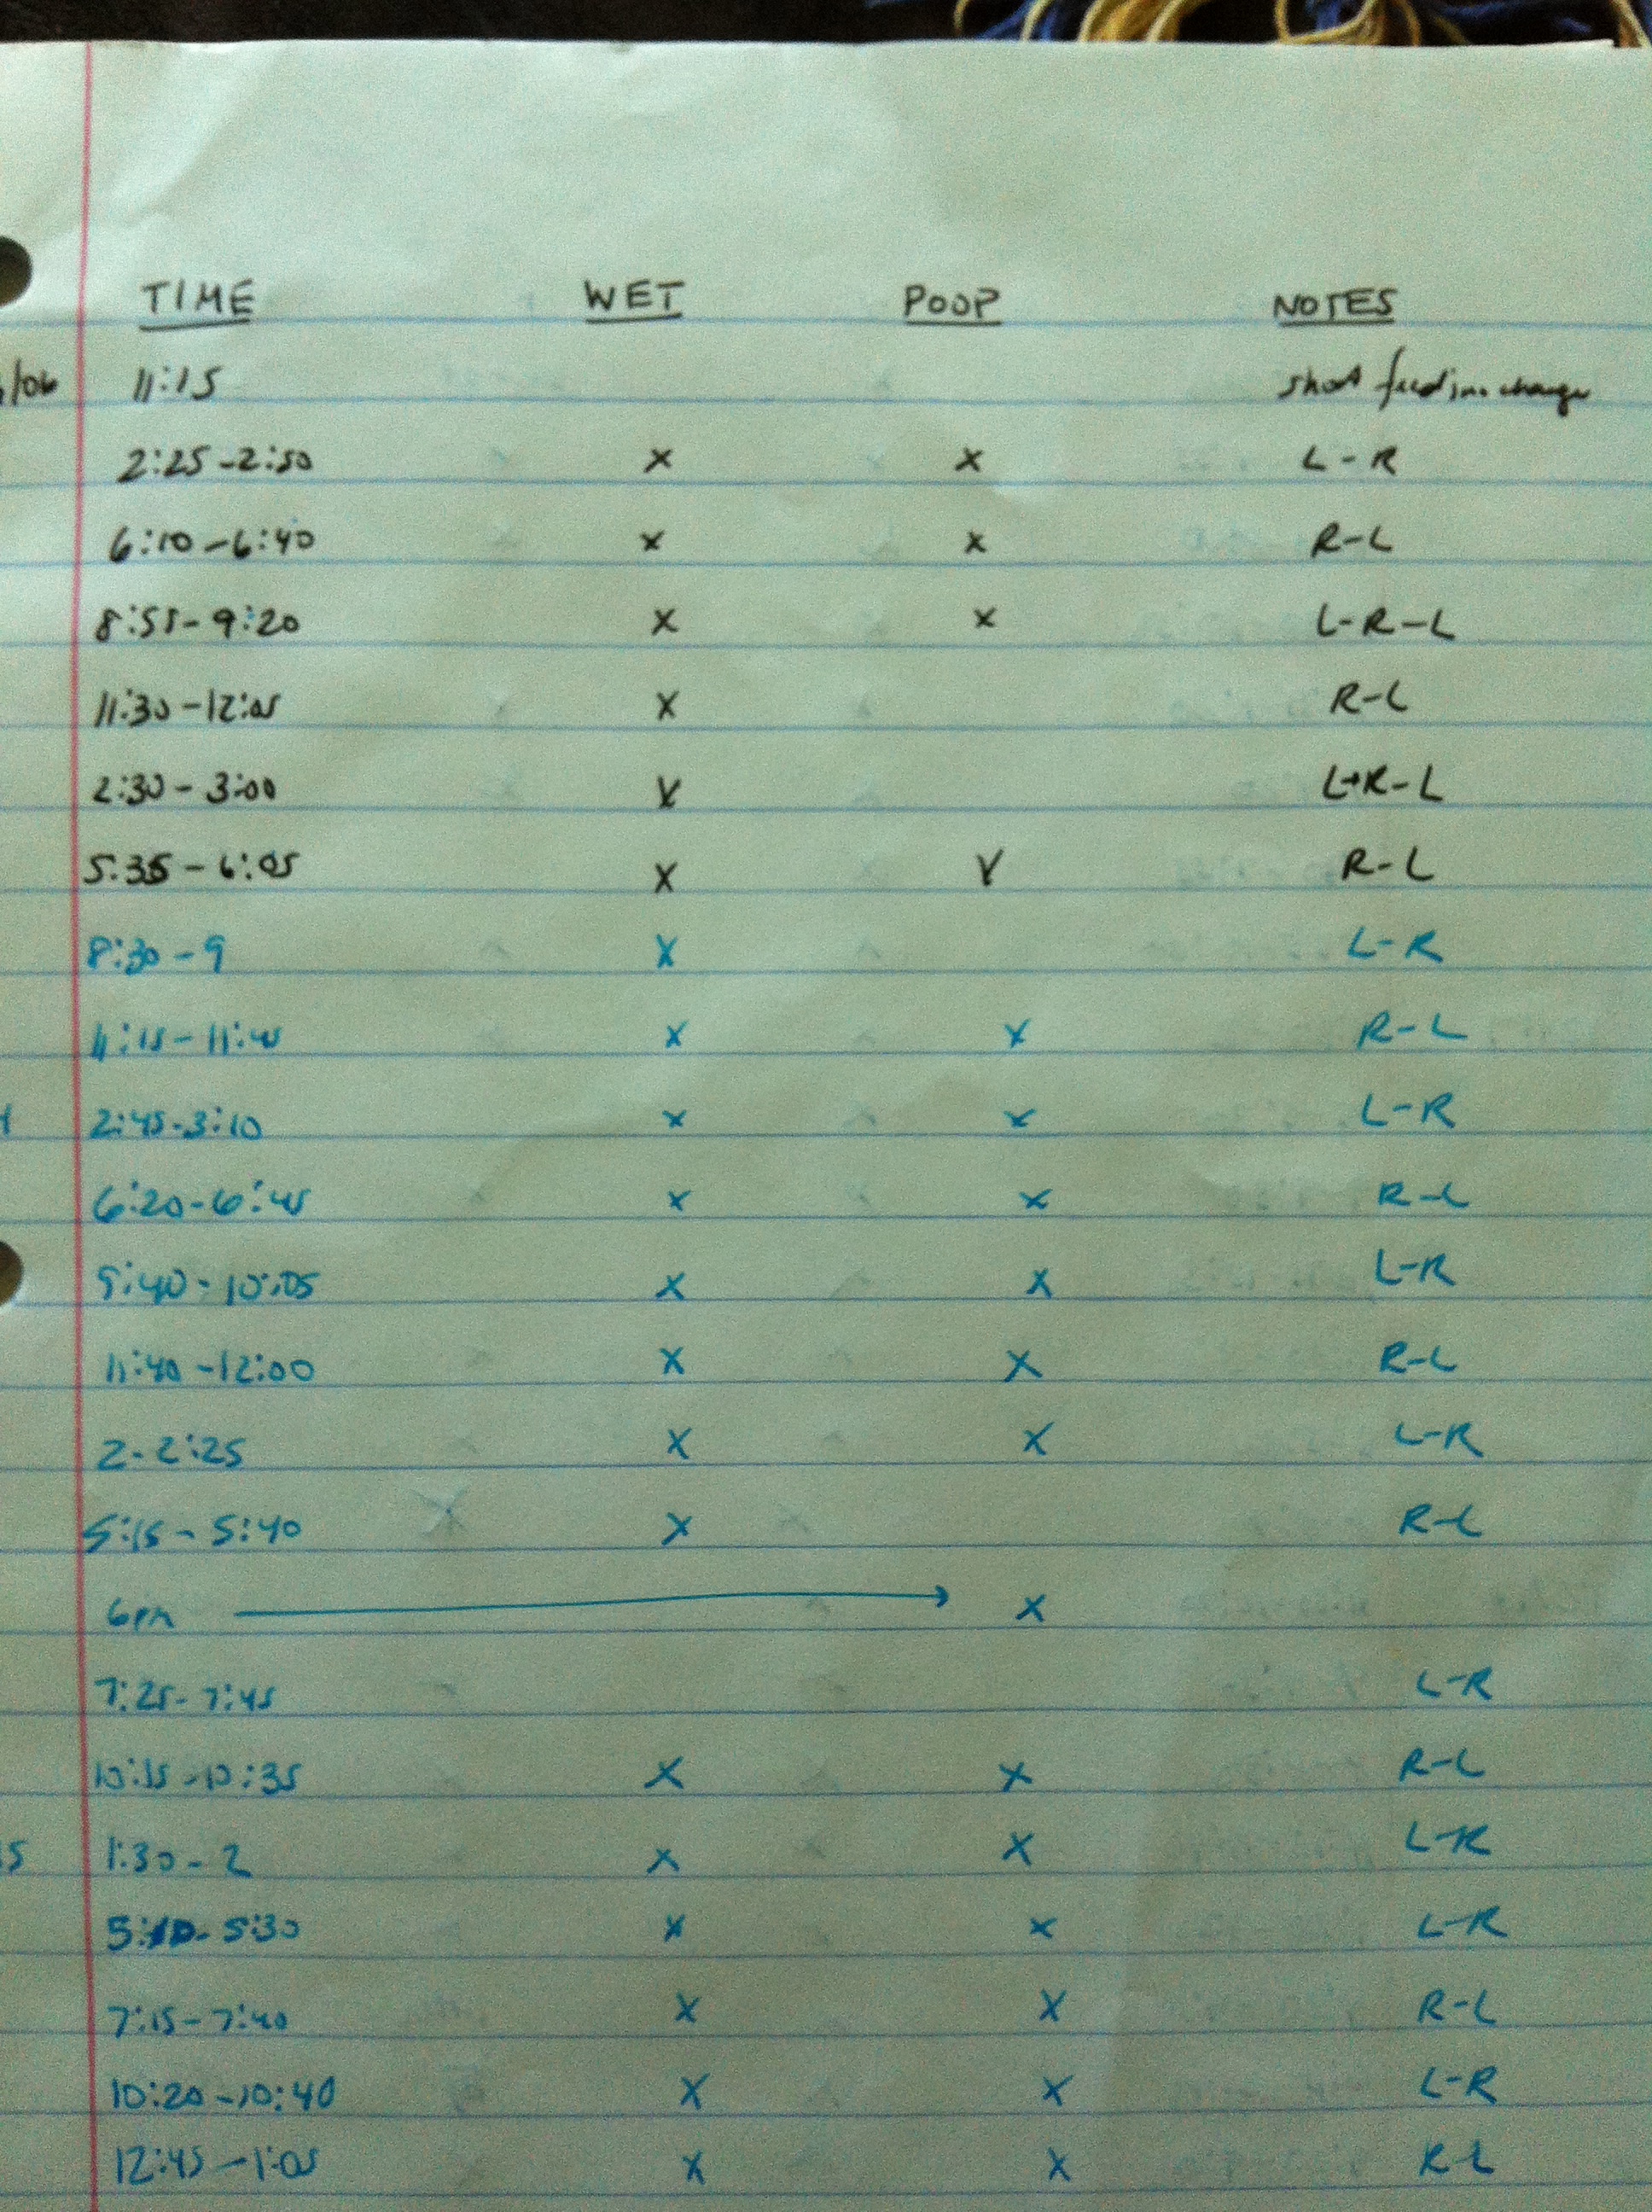 TIME WET POOP NOTES
/06 11:15 short feeding change
2:25-2:50 X X L-R
6:10-6:40 X X R-L
8:55-9:20 X X L-R-L
11:30-12:05 X R-L
2:30-3:00 X L-R-L
5:35-6:05 X X R-L
8:30-9 X L-R
11:15-11:45 X X R-L
2:45-3:10 X X L-R
6:20-6:45 X X R-L
9:40-10:05 X X L-R
11:40-12:00 X X R-L
2-2:25 X X L-R
5:15-5:40 X R-L
6pm → X
7:25-7:45 L-R
10:15-10:35 X X R-L
5 1:30-2 X X L-R
5:10-5:30 X X L-R
7:15-7:40 X X R-L
10:20-10:40 X X L-R
12:45-1:05 X X R-L